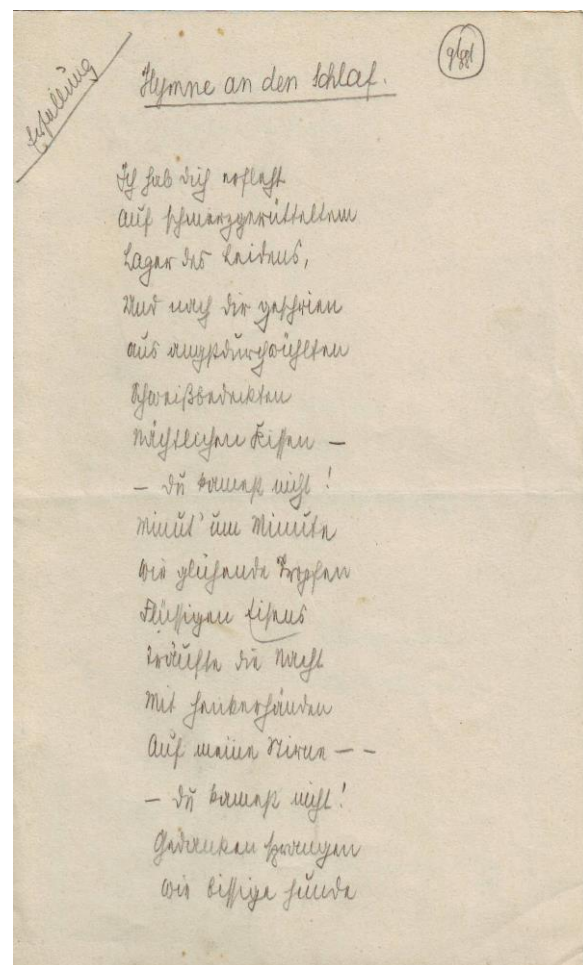 Erfüllung
Hymne an den Schlaf.
Ich hab dich erfleht
Auf schmerzgerütteltem
Lager des Leidens,
Und nach dir geschrien
aus angstdurchwühlten
Schweißbedeckten
Nächtlichen Kissen —
— Du kamest nicht!
Minut' um Minute
Wie glühende Tropfen
Flüssigen Eisens
Träufte die Nacht
Mit Henkerhänden
Auf meine Stirne — —
— Du kamest nicht!
Gedanken sprangen
Wie bissige Hunde